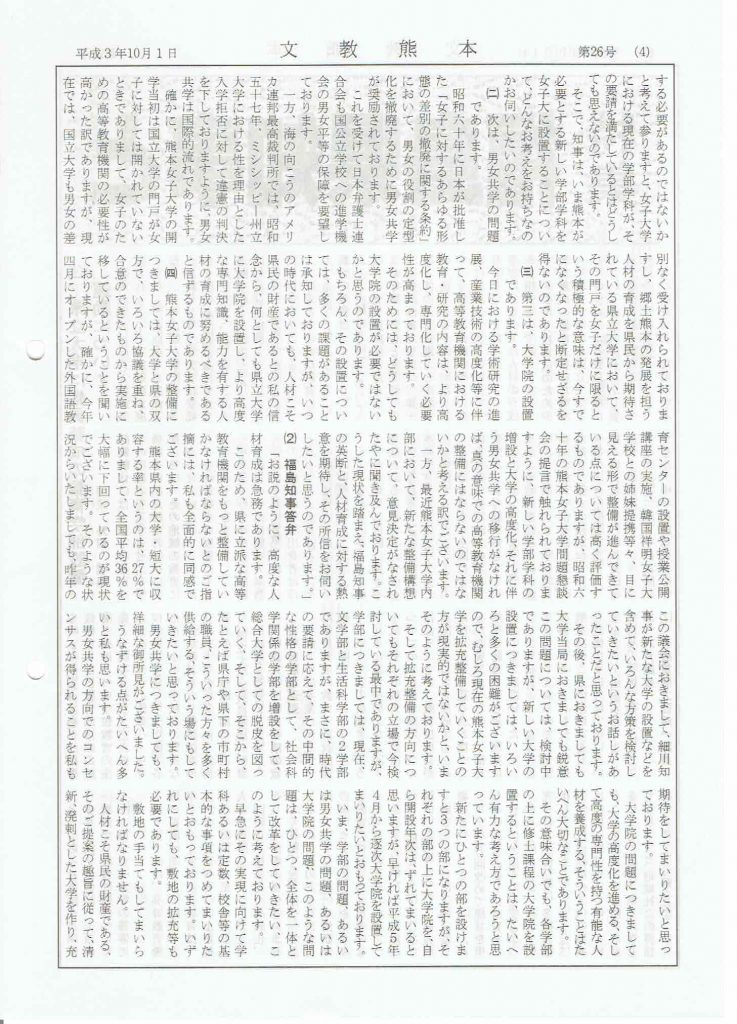 平成3年10月1日
文教熊本
第26号 (4)
する必要があるのではないか
と考えて参りますと、女子大学
における現在の学部学科が、そ
の要請を満たしているとはどうし
ても思えないのであります。
そこで、知事は、いま熊本が
必要とする新しい学部学科を
女子大に設置することについ
て、どんなお考えをお持ちなの
かお伺いしたいのであります。
(二) 次は、男女共学の問題
であります。
昭和六十年に日本が批准し
た「女子に対するあらゆる形
態の差別の撤廃に関する条約」
において、男女の役割の定型
化を撤廃するために男女共学
が奨励されております。
これを受けて日本弁護士連
合会も国公立学校への進学機
会の男女平等の保障を要望し
ております。
一方、海の向こうのアメリ
カ連邦最高裁判所では、昭和
五十七年、ミシシッピー州立
大学における性を理由とした
入学拒否に対して違憲の判決
を下しておりますように、男女
共学は国際的流れであります。
確かに、熊本女子大学の開
学当初は国立大学の門戸が女
子に対しては開かれていない
ときでありまして、女子のた
めの高等教育機関の必要性が
高かった訳でありますが、現
在では、国立大学も男女の差
別なく受け入れられております
すし、郷土熊本の発展を担う
人材の育成を県民から期待さ
れている県立大学において、
その門戸を女子だけに限ると
いう積極的な意味は、今すで
になくなったと断定せざるを
得ないのであります。
(三) 第三は、大学院の設置
であります。
今日における学術研究の進
展、産業技術の高度化等に伴
って、高等教育機関における
教育・研究の内容は、より高
度化し、専門化していく必要
性が高まっております。
そのためには、どうしても
大学院の設置が必要ではない
かと思うのであります。
もちろん、その設置につい
ては、多くの課題があること
は承知しておりますが、いつ
の時代においても、人材こそ
県民の財産であるとの私の信
念から、何としても県立大学
に大学院を設置し、より高度
な専門知識、能力を有する人
材の育成に努めるべきである
と信ずるものであります。
(四) 熊本女子大学の整備に
つきましては、大学と県の双
方で、いろいろ協議を重ね、
合意のできたものから実施に
移しているということを聞い
ておりますが、確かに、今年
四月にオープンした外国語教
育センターの設置や授業公開
講座の実施、韓国祥明女子大
学校との姉妹提携等々、目に
見える形で整備が進んできて
いる点については高く評価す
るものでありますが、昭和六
十年の熊本女子大学問題懇談
会の提言で触れられておりま
すように、新しい学部学科の
増設と大学の高度化、それに伴
う男女共学への移行がなけれ
ば、真の意味での高等教育機関
の整備にはならないのではな
いかと考える訳でございます。
一方、最近熊本女子大学内
部において、新たな整備構想
について、意見決定がなされ
たやに聞き及んでおります。こ
うした現状を踏まえ、福島知事
の英断と、人材育成に対する熱
意を期待し、その所信をお伺い
したいと思うのであります。」
(2) 福島知事答弁
「お説のように、高度な人
材育成は急務であります。
このため、県に立派な高等
教育機関をもっと整備してい
かなければならないとのご指
摘には、私も全面的に同感で
ございます。
熊本県内の大学・短大に収
容する率というのは、27%で
ありまして、全国平均36%を
大幅に下回っているのが現状
でございます。そのような状
況からいたしましても、昨年の
この議会におきまして、細川知
事が新たな大学の設置などを
含めて、いろんな方策を検討し
ていきたいというお話しがあ
ったことだと思っております。
その後、県におきましても
大学当局におきましても鋭意
この問題については、検討中
でありますが、新しい大学の
設置につきましては、いろい
ろと多くの困難がございます
ので、むしろ現在の熊本女子大
学を拡充整備していくことの
方が現実的ではないかと、いま
そのように考えております。
そして拡充整備の方向につ
いてもそれぞれの立場で今検
討している最中でありますが、
学部につきましては、現在、
文学部と生活科学部の2学部
でありますが、まさに、時代
の要請に応えて、その中間的
な性格の学部として、社会科
学関係の学部を増設をして、
総合大学としての脱皮を図っ
ていく、そして、そこから、
たとえば県庁や県下の市町村
の職員、こういった方々を多く
供給する、そういう場にもして
いきたいと思っております。
男女共学につきましても、
祥細な御所見がございました。
うなずける点がたいへん多
いと私も思います。
男女共学の方向でのコンセ
ンサスが得られることを私も
期待をしてまいりたいと思っ
ております。
大学院の問題につきまして
も、大学の高度化を進める、そし
て高度の専門性を持つ有能な人
材を養成する、そういうことはた
いへん大切なことであります。
その意味合いでも、各学部
の上に修士課程の大学院を設
置するということは、たいへ
ん有力な考え方であろうと思
っています。
新たにひとつの部を設けま
すと3つの部になりますが、そ
れぞれの部の上に大学院を、自
ら開設年次は、ずれてまいると
思いますが、早ければ平成5年
4月から逐次大学院を設置して
まいりたいとおもっております。
いま、学部の問題、あるい
は男女共学の問題、あるいは
大学院の問題、このような問
題は、ひとつ、全体を一体と
して改革をしていきたい、こ
のように考えております。
早急にその実現に向けて学
科あるいは定数、校舎等の基
本的な事項をつめてまいりた
いとおもっております。いず
れにしても、敷地の拡充等も
必要であります。
敷地の手当てもしてまいら
なければなりません。
人材こそ県民の財産である、
そのご提案の趣旨に従って、清
新、溌剌とした大学を作り、充